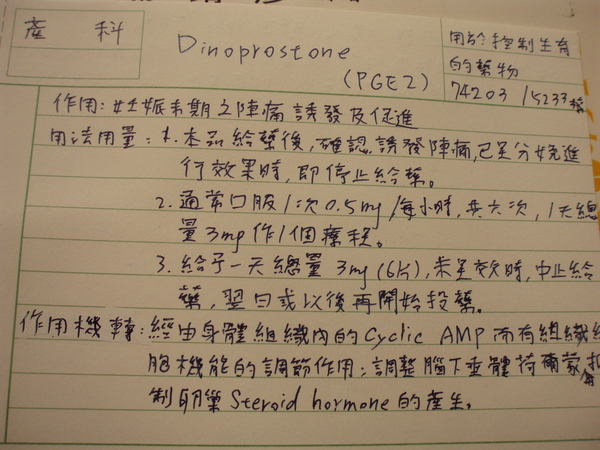 產科
Dinoprostone
(PGE2)
用於控制生育
的藥物
74203 / 5233
作用:妊娠末期之陣痛誘發及促進
用法用量:1.本品給藥後,確認誘發陣痛,已呈分娩進
行效果時,即停止給藥。
2.通常口服1次0.5mg/每小時,共六次,1天總
量3mg作1個療程。
3.給予一天總量3mg(6片),未呈效時,中止給
藥,翌日或以後再開始投藥。
作用機轉:經由身體組織內的Cyclic AMP而有組織細
胞機能的調節作用;調整腦下垂體荷爾蒙抑
制卵巢Steroid hormone的產生。